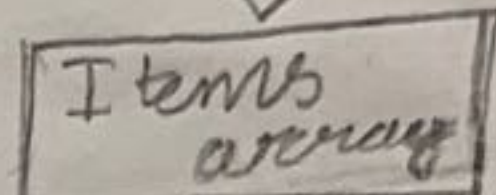 Items
array